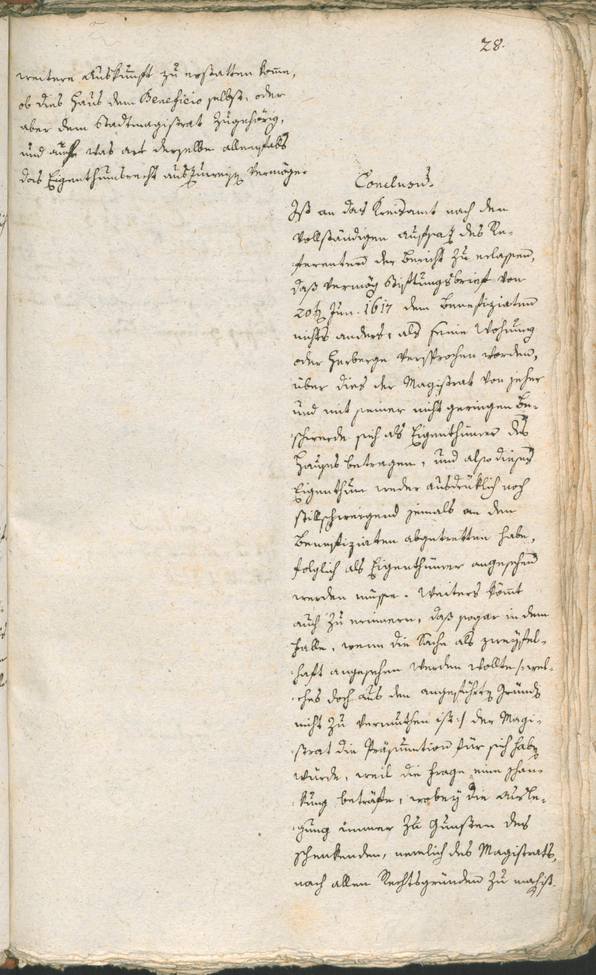 28.
weitere Auskunft zu erstatten komme,
ob dies Haus dem Beneficio selbst, oder
aber dem Stadtmagistrat zugehörig,
und auch was art derselbe allenfalls
das Eigenthumsrecht auszuweisen vermöge.
Conclusum.
Ist an das Kreisamt nach den
vollständigen Aufsatz des Re-
ferenten der Bericht zu erlassen,
daß vermög Stiftungsbrief von
20t Jun. 1617 dem Benefiziaten
nichts anders, als freie Wohnung
oder Herberge versprochen worden,
über dies der Magistrat von jeher
und mit seiner nicht geringen Be-
schwerde sich als Eigenthümer des
Hauses betragen, und also dieses
Eigenthum weder ausdrüklich noch
stillschweigend jemals an den
Benefiziaten abgetretten habe,
folglich als Eigenthümer angesehen
werden müsse. Weiters kömmt
auch zu erinnern, daß sogar in dem
Falle, wenn die Sache als zweyfel-
haft angesehen werden wollte /: wel-
ches doch aus den angeführten Gründen
nicht zu vermuthen ist :/ der Magi-
strat die Präsumtion für sich haben
würde, weil die Frage eine Schan-
kung beträfe, wobey die Ausle-
gung immer zu Gunsten des
Schenkenden, nemlich des Magistrats,
nach allen Rechtsgründen zu